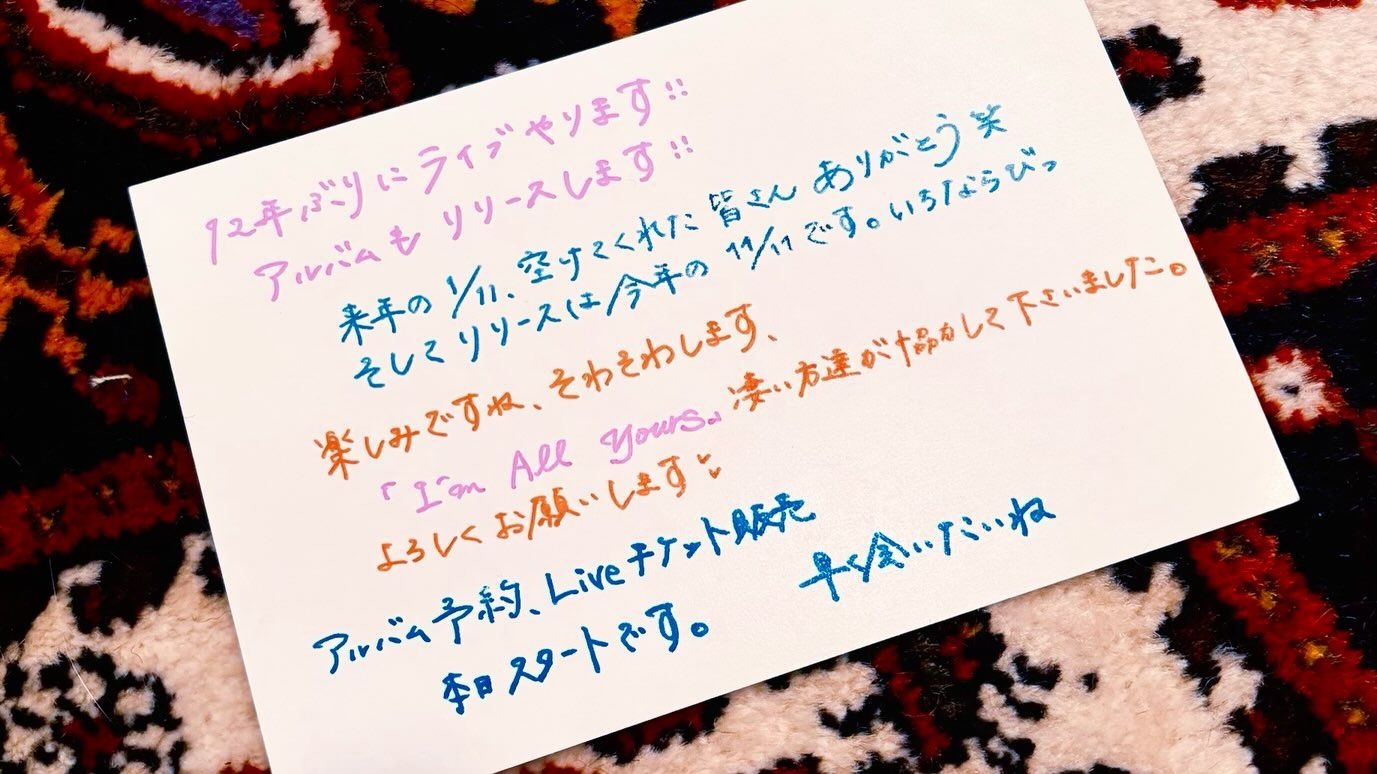 12年ぶりにライブやります!!
アルバムもリリースします!!
来年の1/11、空けてくれた皆さんありがとう笑
そしてリリースは今年の11/11です。いちならびっ
楽しみですね、そわそわします、
「I'm All Yours」凄い方達が協力して下さいました。
よろしくお願いします
アルバム予約、Liveチケット販売
本日スタートです。
早く会いたいね